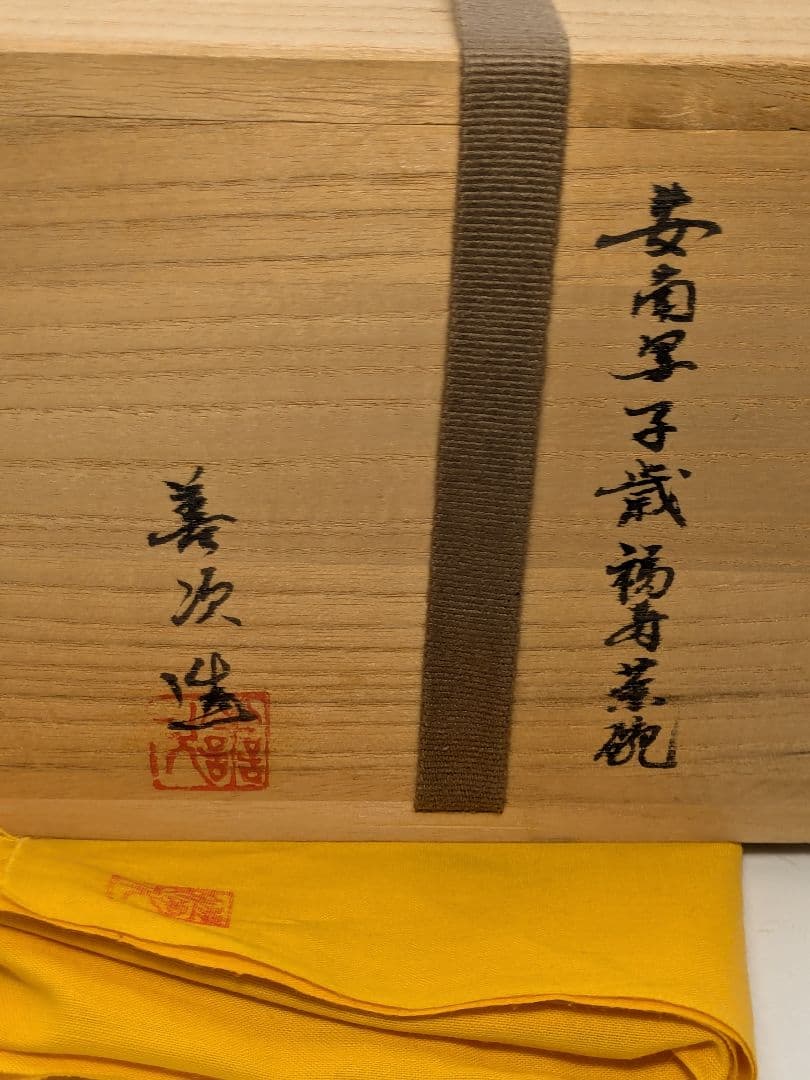 安南写子歳福寿茶碗
善次造